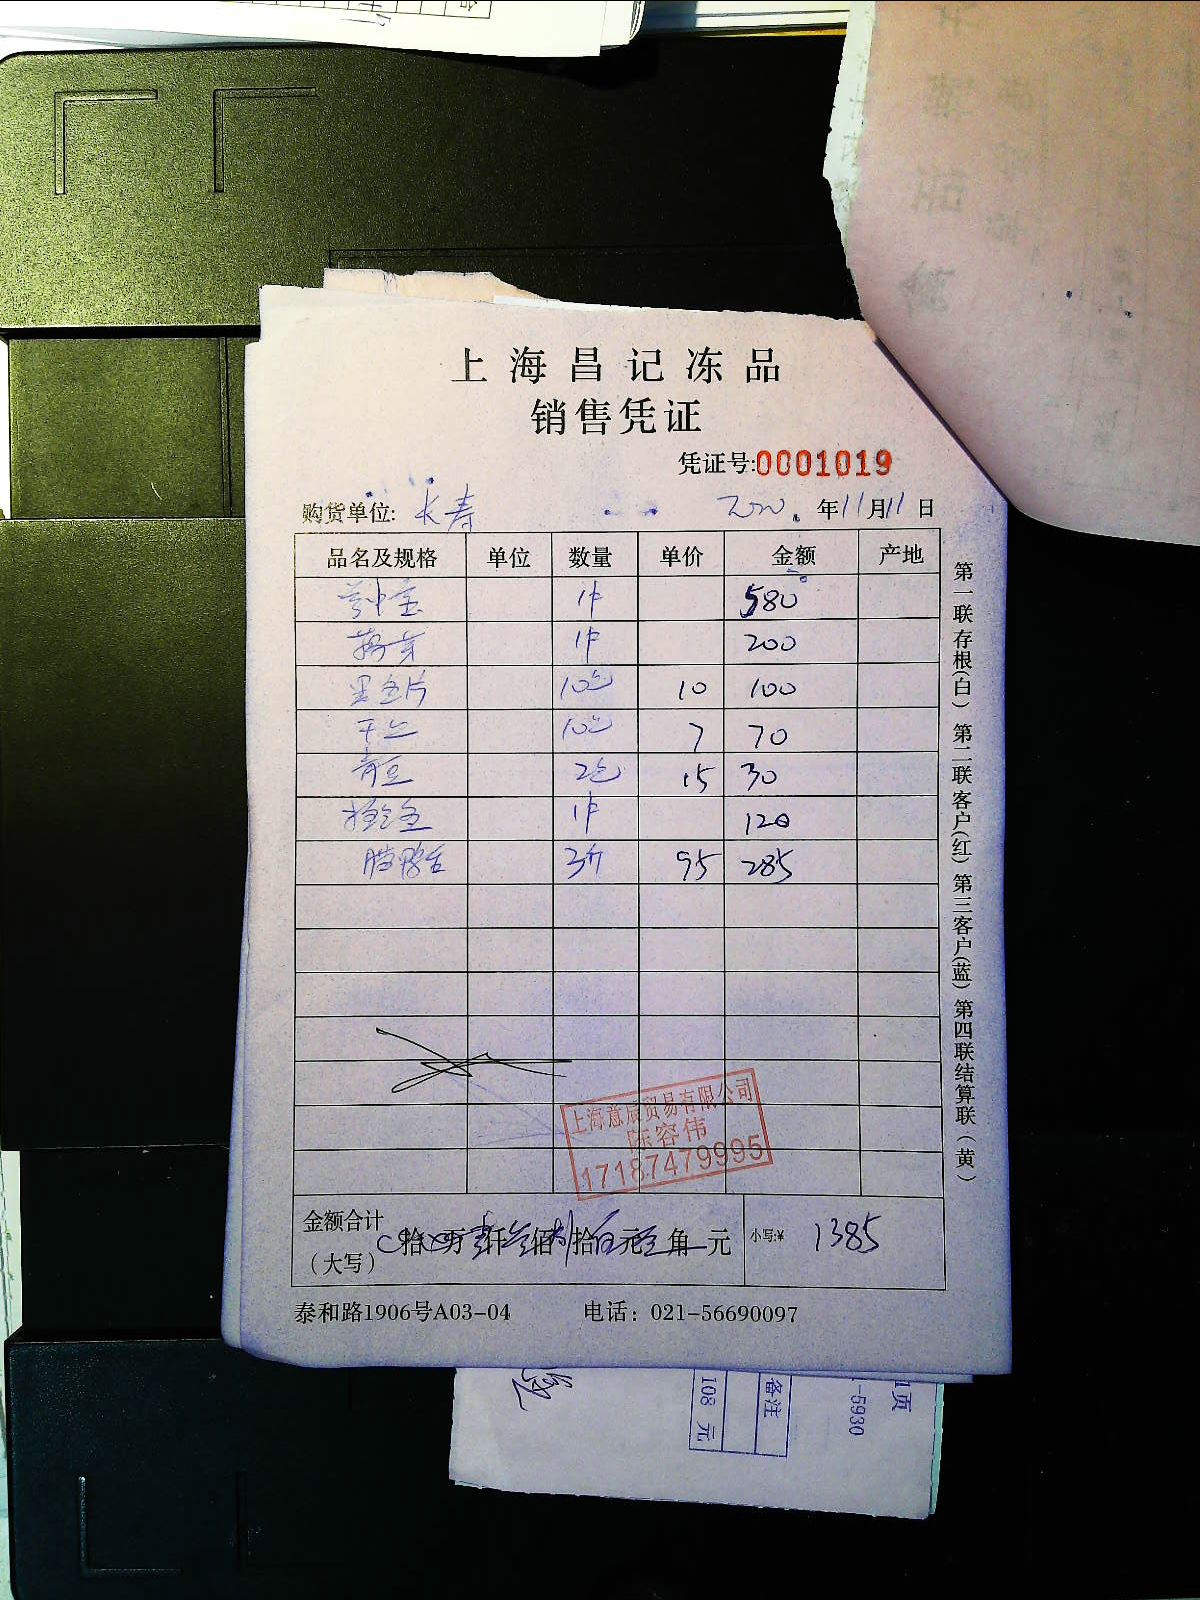 上海昌记冻品
销售凭证
凭证号:0001019
购货单位: 长寿 2020. 年11月11日
品名及规格 单位 数量 单价 金额 产地
1件 580
1件 200
黑鱼片 10包 10 100
干丝 10包 7 70
青豆 2包 15 30
1件 120
鸭舌 3斤 95 285
上海意辰贸易有限公司
陈容伟
17187479995
金额合计
(大写)
拾 万 仟 佰 拾 元 角 元
小写:¥ 1385
泰和路1906号A03-04 电话: 021-56690097
第一联存根(白) 第二联客户(红) 第三客户(蓝) 第四联结算联(黄)
1页
-5930
备注
108 元